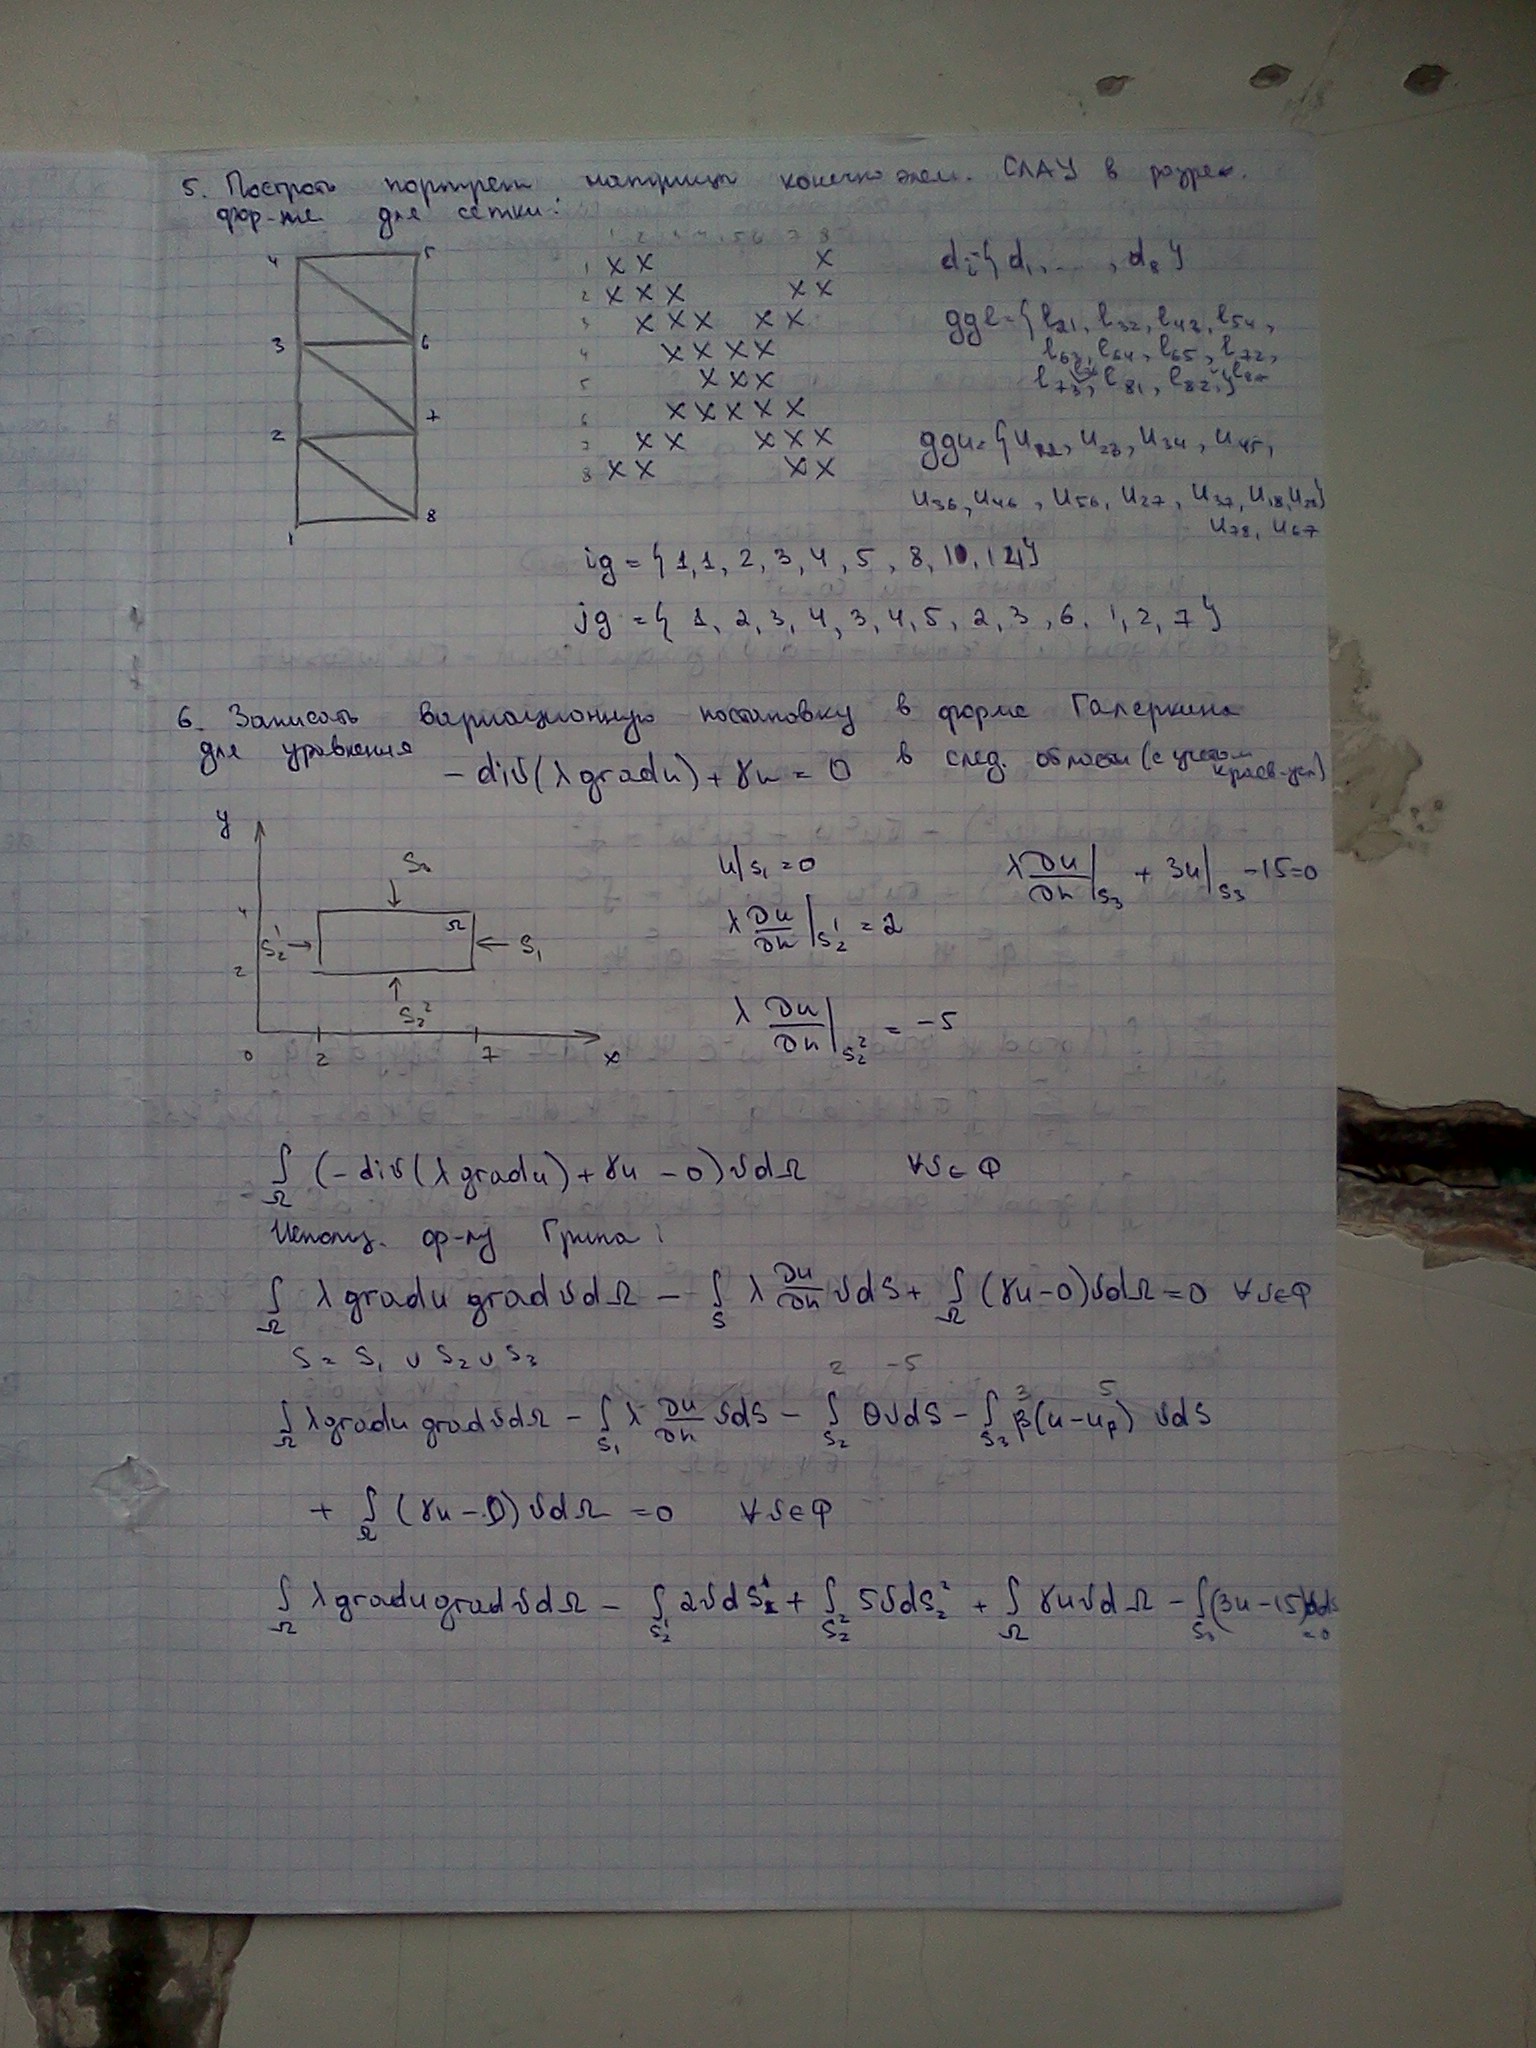 5. Построить портрет матрицы конечноэлем. СЛАУ в разреж.
фор-те для сетки:
4 5
3 6
2 7
1 8
1 2 3 4 5 6 7 8
1 x x x
2 x x x x x
3 x x x x x
4 x x x x
5 x x x
6 x x x x x
7 x x x x x
8 x x x x
di={d₁, ... , d₈}
ggl={l₂₁, l₃₂, l₄₃, l₅₄,
l₆₃, l₆₄, l₆₅, l₇₂,
l₇₃, l₇₆, l₈₁, l₈₂, l₈₇}
ggu={u₁₂, u₂₃, u₃₄, u₄₅,
u₃₆, u₄₆, u₅₆, u₂₇, u₃₇, u₁₈, u₂₈}
u₇₈, u₆₇
ig = {1,1, 2, 3, 4, 5, 8, 10, 14}
jg = { 1, 2, 3, 4, 3, 4, 5, 2, 3, 6, 1, 2, 7}
6. Записать вариационную постановку в форме Галеркина
для уравнения -div(λ gradu) + γu = 0 в след. области (с учетом краев-усл)
y
S₃
4
Ω
S₂¹ S₁
2
S₂²
0 2 7 x
u|s₁ = 0
λ ∂u/∂n |S₂¹ = 2
λ ∂u/∂n |S₂² = -5
λ ∂u/∂n |S₃ + 3u|S₃ - 15 = 0
∫Ω (-div(λ gradu) + γu - 0) v dΩ ∀v ∈ Φ
Использ. ф-лу Грина:
∫Ω λ gradu gradv dΩ - ∫S λ ∂u/∂n v dS + ∫Ω (γu-0) v dΩ = 0 ∀v∈Φ
S = S₁ ∪ S₂ ∪ S₃
2 -5
∫Ω λ gradu gradv dΩ - ∫S₁ λ ∂u/∂n v dS - ∫S₂ θ v dS - ∫S₃ β(u-uβ) v dS
3 5
+ ∫Ω (γu - 0) v dΩ = 0 ∀v∈Φ
∫Ω λ gradu gradv dΩ - ∫S₂¹ 2v dS₂¹ + ∫S₂² 5v dS₂² + ∫Ω γuv dΩ - ∫S₃ (3u-15) v ds
= 0